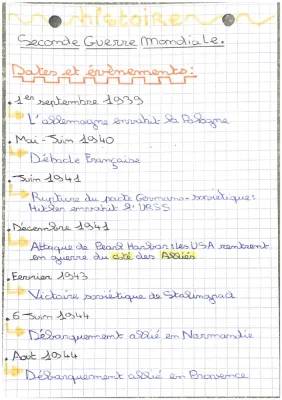 histoire
Seconde Guerre Mondiale.
Dates et évènements :
. 1er septembre 1939
L'allemagne envahit la Pologne
. Mai - Juin 1940
Débacle Française
. Juin 1941
Rupture du pacte Germano-soviétique :
Hitler envahit l'URSS
. Décembre 1941
Attaque de Pearl Harbor : les USA rentrent
en guerre du côté des Alliés
. Février 1943
Victoire soviétique de Stalingrad
. 6 Juin 1944
Débarquement allié en Normandie
. Aout 1944
Débarquement allié en Provence